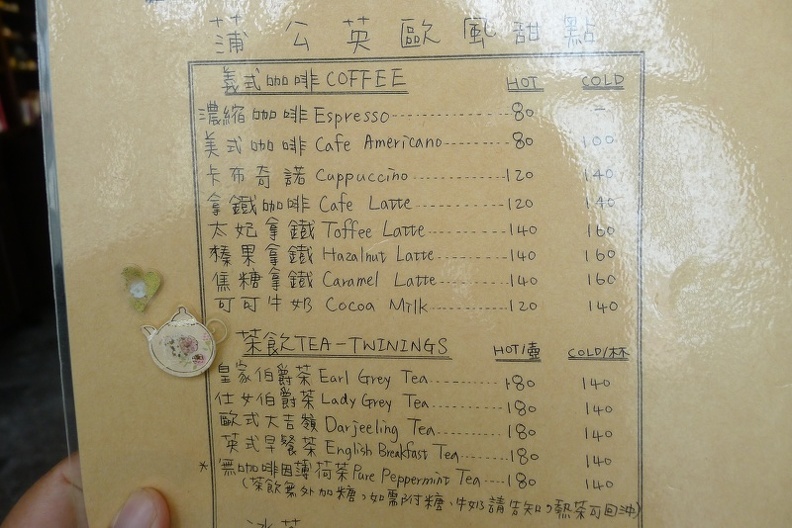 蒲公英歐風甜點
義式咖啡 COFFEE HOT COLD
濃縮咖啡 Espresso 80 –
美式咖啡 Cafe Americano 80 100
卡布奇諾 Cappuccino 120 140
拿鐵咖啡 Cafe Latte 120 140
太妃拿鐵 Toffee Latte 140 160
榛果拿鐵 Hazalnut Latte 140 160
焦糖拿鐵 Caramel Latte 140 160
可可牛奶 Cocoa Milk 120 140
茶飲 TEA-TWININGS HOT/壺 COLD/杯
皇家伯爵茶 Earl Grey Tea 180 140
仕女伯爵茶 Lady Grey Tea 180 140
歐式大吉嶺 Darjeeling Tea 180 140
英式早餐茶 English Breakfast Tea 180 140
* 無咖啡因薄荷茶 Pure Peppermint Tea 180 140
(茶飲無外加糖,如需附糖、牛奶請告知。熱茶可回沖)
冰茶